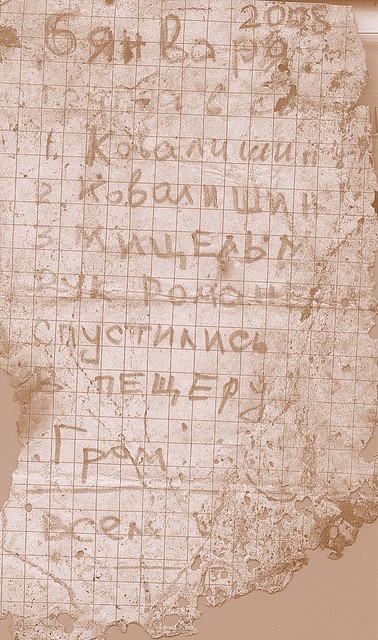 2008
6 января
1. Ковалишин
2. Ковалишин
3. Мицель М
Зук Роман
спустились
в пещеру
Грам
всем